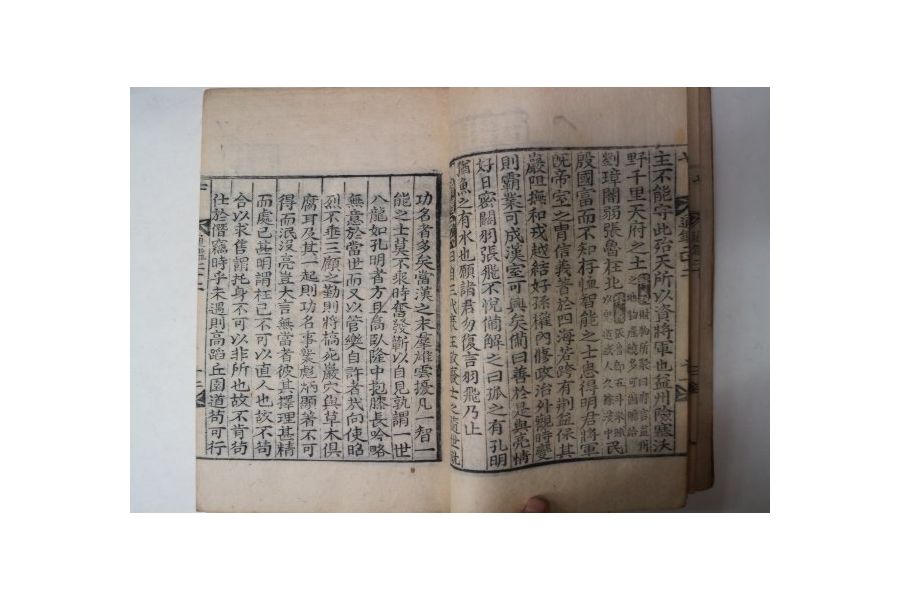 主不能守此殆天所以資將軍也益州險塞沃
野千里天府之土
劉璋闇弱張魯在北
民
殷國富而不知存恤智能之士思得明君將軍
旣帝室之胄信義著於四海若跨有荊益保其
巖阻撫和戎越結好孫權內修政治外觀時變
則霸業可成漢室可興矣備曰善於是與亮情
好日密關羽張飛不悅備解之曰孤之有孔明
猶魚之有水也願諸君勿復言羽飛乃止
曰自三代
士之
世
功名者多矣當漢之末羣雄雲擾凡一智一
能之士莫不乘時奮發靳以自見孰謂一世
八龍如孔明者方且高臥隆中抱膝長吟略
無意於當世而又以管樂自許者哉向使昭
烈不垂三顧之勤則將槁死巖穴與草木俱
腐耳及其一起則功名事業彪炳顯著不可
得而泯沒亮豈大言無當者彼其擇理甚精
而處己甚明謂枉己不可以直人也故不苟
合以求售謂托身不可以非所也故不肯苟
仕於僭竊時乎未遇則高蹈丘園道苟可行